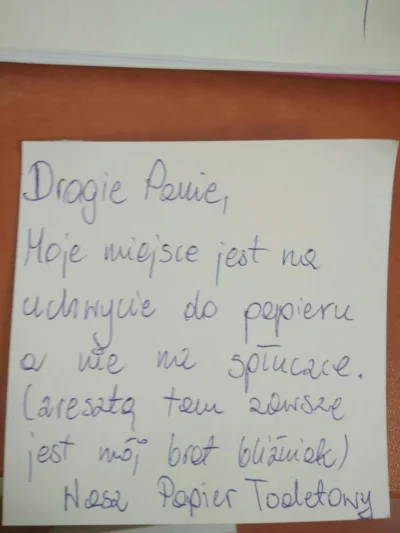 Drogie Panie,
Moje miejsce jest na
uchwycie do papieru
a nie na spłuczce.
(zresztą tam zawsze
jest mój brat bliźniak)
Wasz Papier Toaletowy